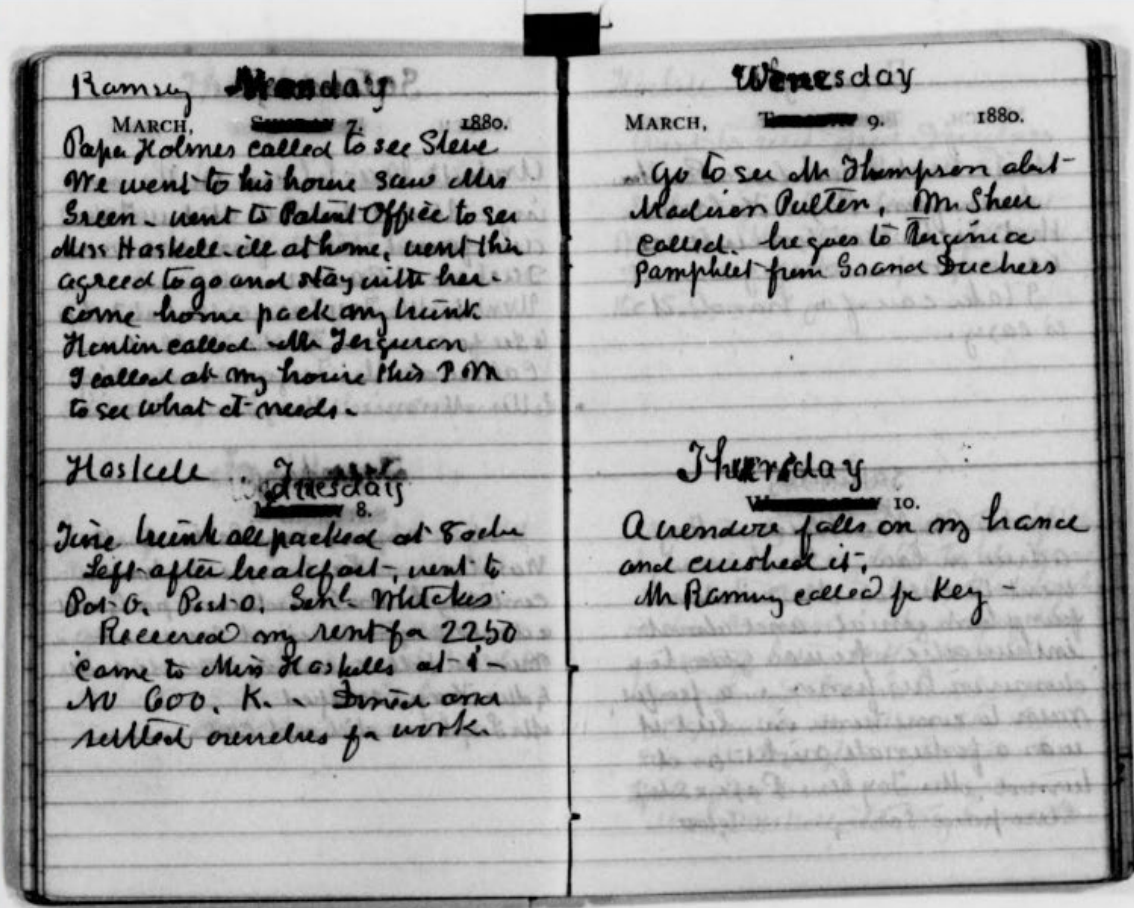 Ramsey Monday
MARCH, 7. 1880.
Papa Holmes called to see Steve
We went to his house saw Mrs
Green - went to Patent Office to see
Miss Haskell - ill at home, went thir
agreed to go and stay with her -
come home pack my trunk
called Mr Ferguson
I called at my house this P M
to see what it needs -
Haskell Tuesday
8.
trunk all packed at 8 oclk
Left after breakfast, went to
Pat-O. Post-O. Senl. Whitakers
Received my rent for 22 50
came to Miss Haskells at 1 -
No 600. K. - Dined and
settled ourselves for work.
Wenesday
MARCH, 9. 1880.
Go to see Mr Thompson abut
Madison Mr Shen
called. he goes to Virginia
Pamphlet from Grand Duchess
Thursday
10.
A window falls on my hand
and crushed it,
Mr Ramsey called for Key -